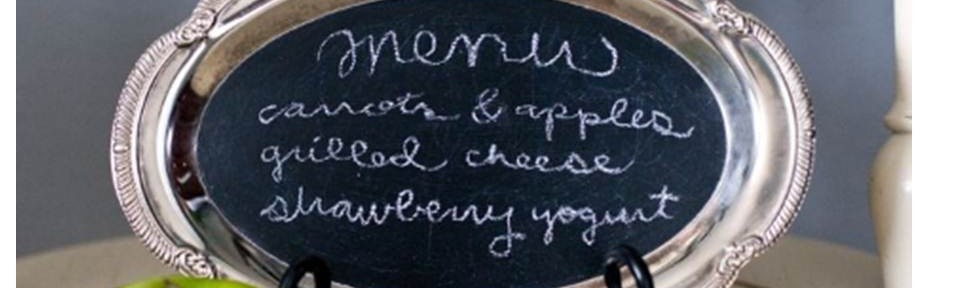 menu
carrots & apples
grilled cheese
strawberry yogurt